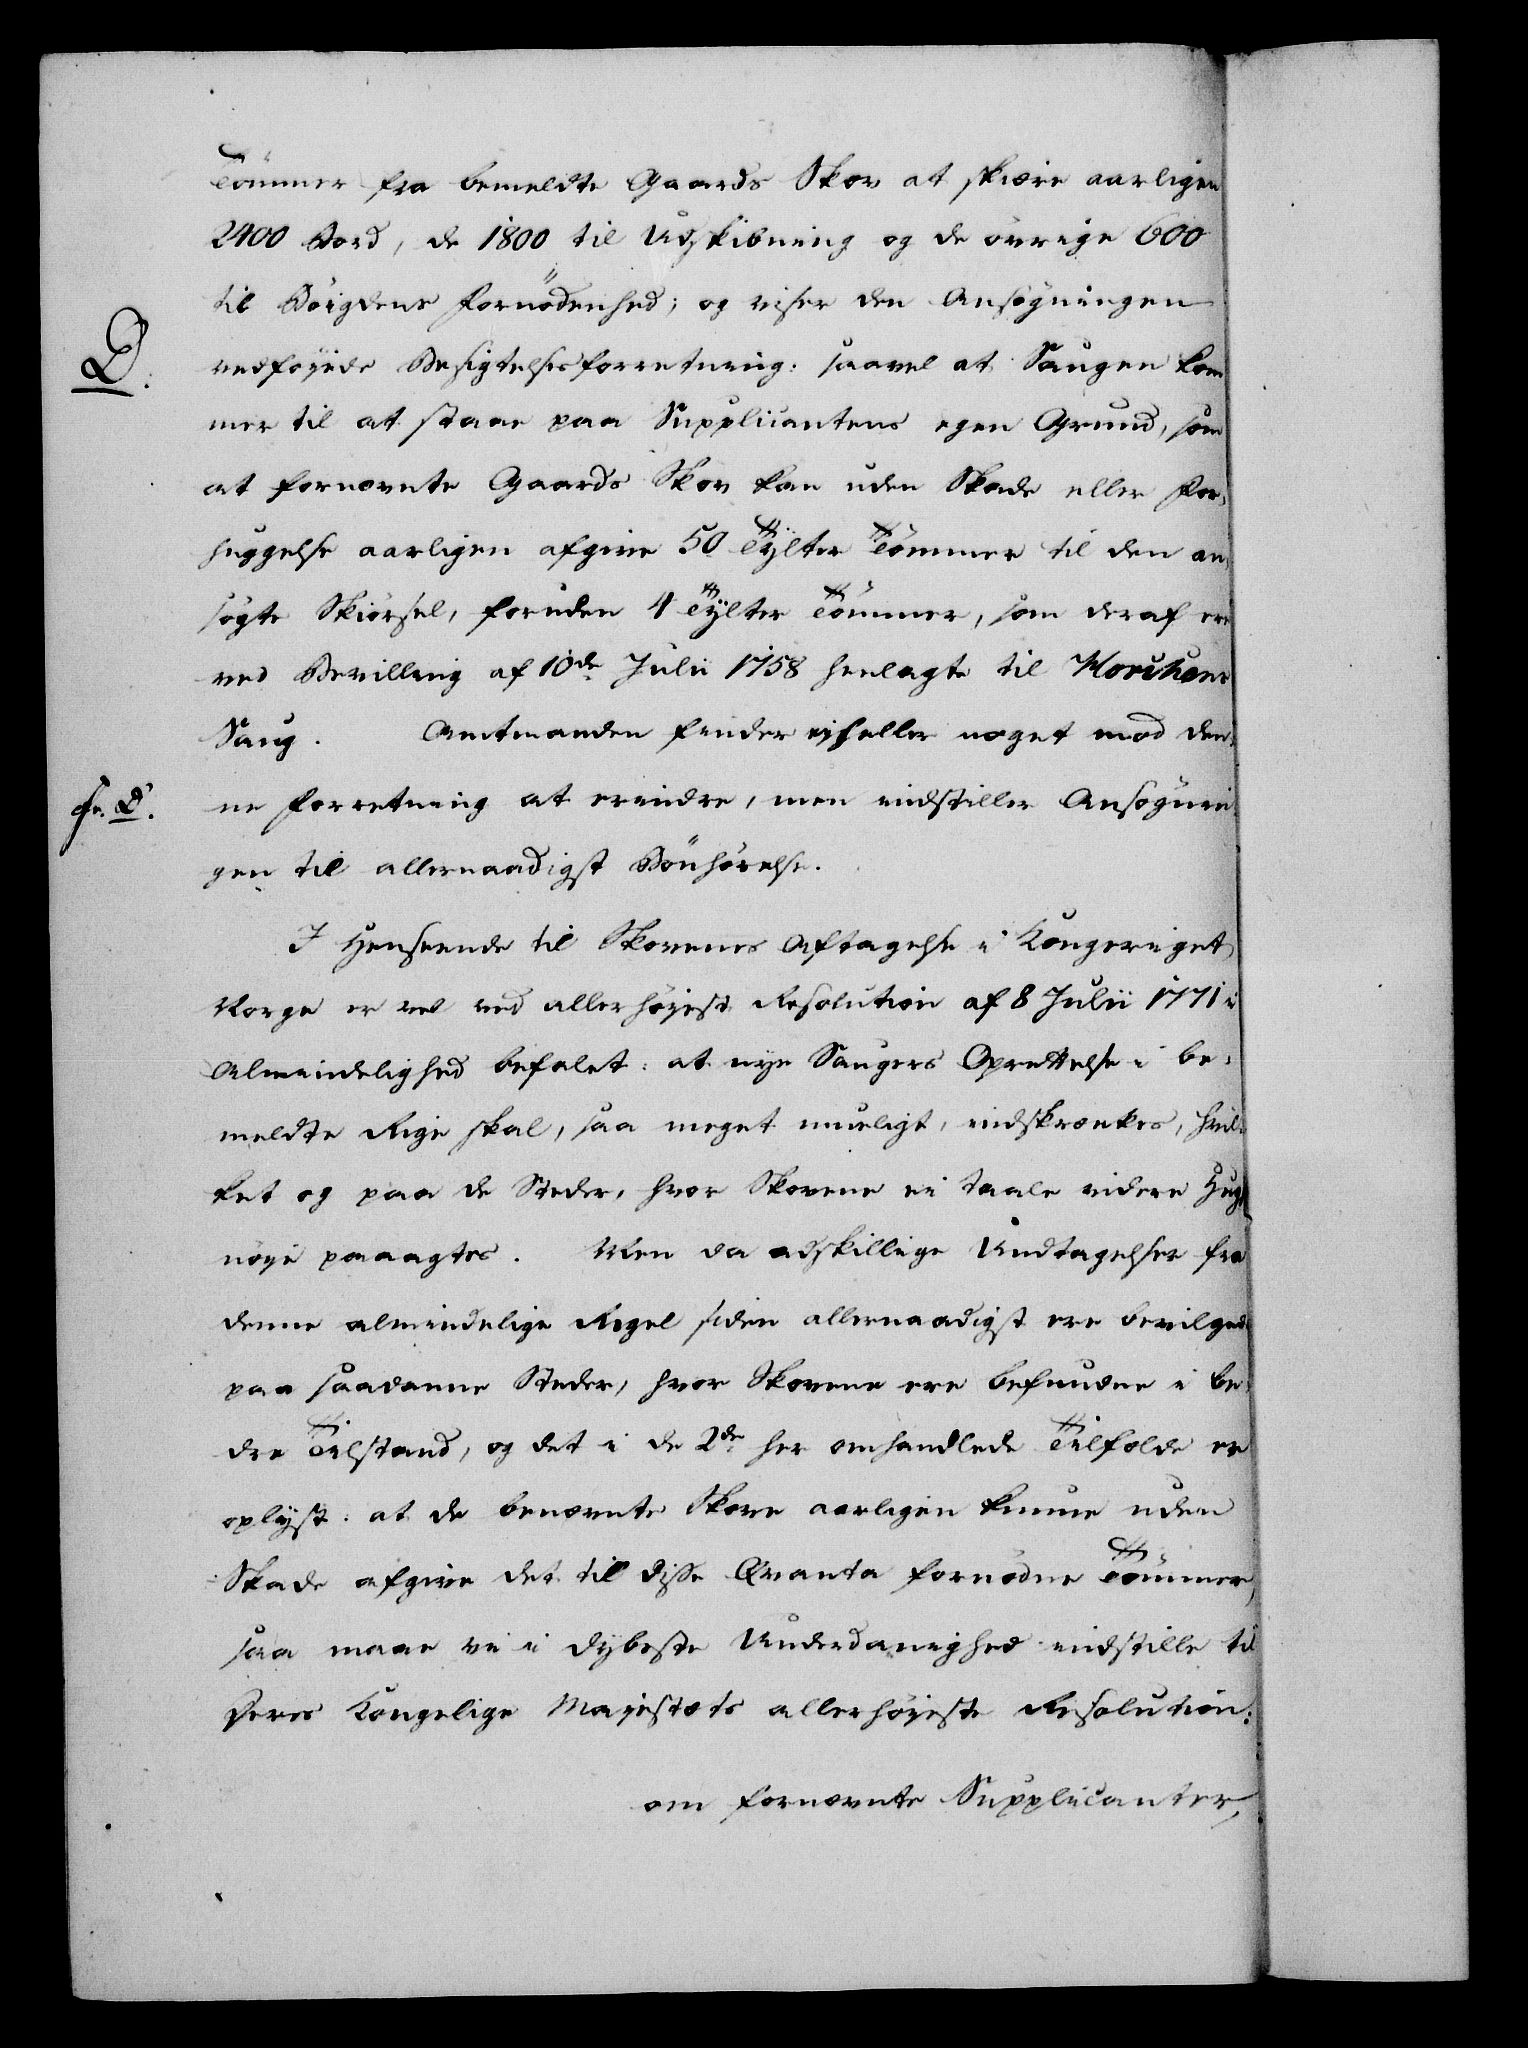 Tömmer fra bemeldte Gaards Skov at skiære aarligen
2400 Bord, de 1800 til Udskibning og de övrige 600
til Böigdens Fornödenhed; og viser den Ansögningen
D.
vedföyede Besigtelsesforretning: saavel at Saugen kom
mer til at staae paa Supplicantens egen Grund, som
at fornævnte Gaards Skov kan uden Skade eller For-
huggelse aarligen afgive 50 Tylter Tömmer til den an-
sögte Skiörsel, foruden 4 Tylter Tömmer, som deraf ere
ved Bevilling af 10de Julii 1758 henlagte til
Saug. Amtmanden finder ej heller noget mod den-
ne Forretning at erindre, men indstiller Ansögnin-
gen til allernaadigst Bönhörelse.
I Henseende til Skovenes Aftagelse i Kongeriget
Norge er vel ved allerhöyest Resolution af 8 Julii 1771 i
Almindelighed befalet: at nye Saugers Oprettelse i be-
meldte Rige skal, saa meget mueligt, indskrænkes, hvil-
ket og paa de Steder, hvor Skovene ei taale videre Hugst
nöye paaagtes. Men da adskillige Undtagelser fra
denne almindelige Regel siden allernaadigst ere bevilgede
paa saadanne Steder, hvor Skovene ere befundne i be-
dre Tilstand, og det i de 2de her omhandlede Tilfælde er
oplyst: at de benævnte Skove aarligen kunne uden
Skade afgive det til disse Qvanta fornödne Tömmer,
saa maae vi i dybeste Underdanighed indstille til
Deres Kongelige Majestæts allerhöyeste Resolution:
om fornævnte Supplicanter,